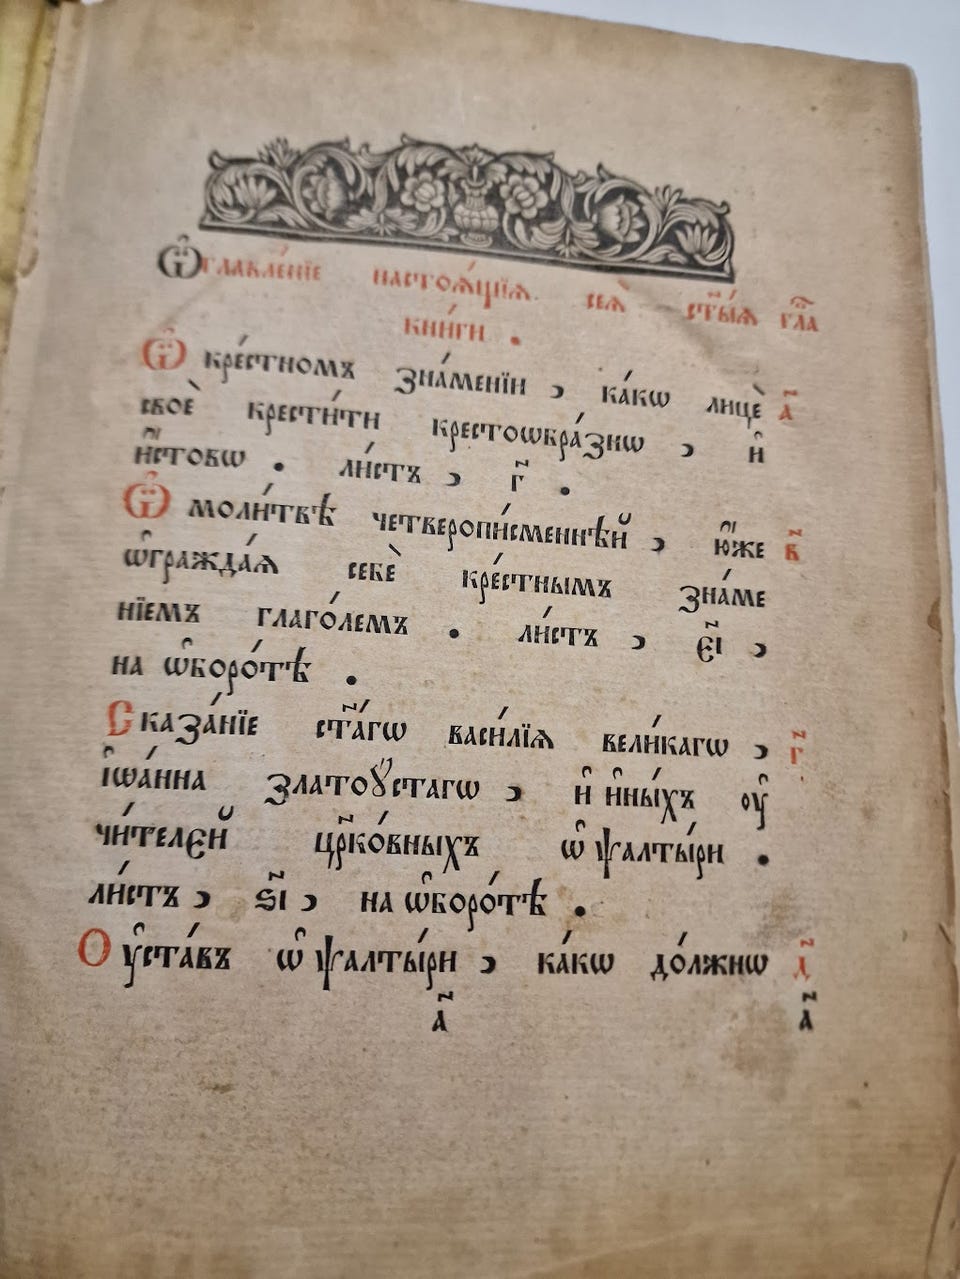 Ѡ҆главле́нїе настоѧ́щїѧ сеѧ̀ ст҃ы́ѧ гла̑
кни́ги .
Ѡ҆ кре́стномъ зна́менїи , ка́кѡ лицѐ а҃
своѐ крести́ти крестоѡбра́знѡ , и҆
и҆́стовѡ . ли́стъ , г҃ .
Ѡ҆ моли́твѣ четверопи́сменнѣй , ю҆́же в҃
ѡ҆гражда́ѧ себѐ кре́стнымъ зна́ме
нїемъ глаго́лемъ . ли́стъ , є҃і ,
на ѡ҆боро́тѣ .
Сказа́нїе ст҃а́гѡ васи́лїѧ вели́кагѡ , г҃
і҆ѡа́нна златоꙋ́стагѡ , и҆ и҆ны́хъ оу҆
чи́телєй цр҃ко́вныхъ ѡ҆ ѱалты́ри .
ли́стъ , ѕ҃і , на ѡ҆боро́тѣ .
Оу҆ста́въ ѡ҆ ѱалты́ри , ка́кѡ до́лжнѡ д҃
а҃ а҃